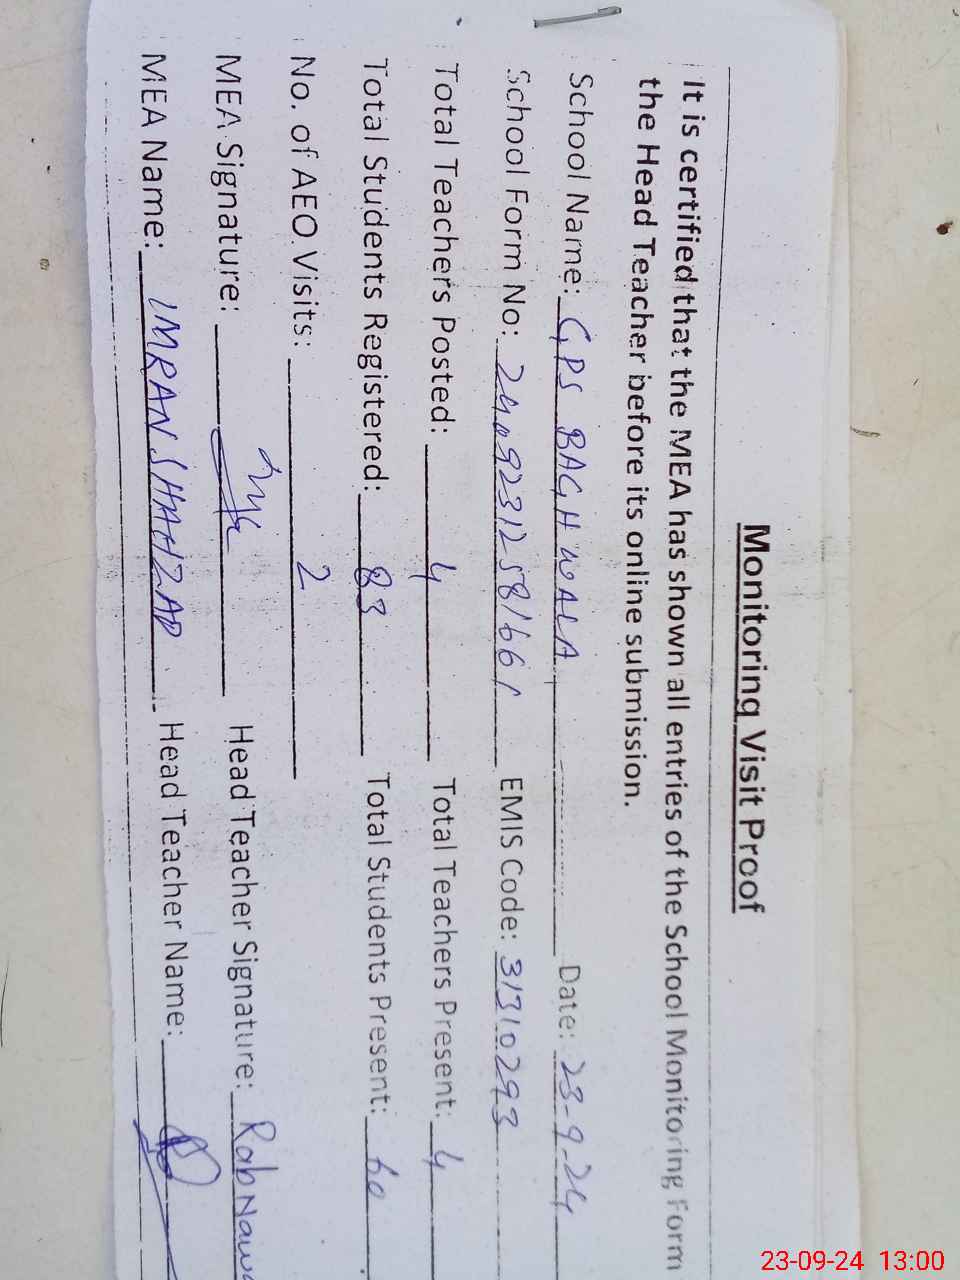 Monitoring Visit Proof
It is certified that the MEA has shown all entries of the School Monitoring Form
the Head Teacher before its online submission.
School Name: GPS BAGHWALA Date: 23-9-24
School Form No: 2409231258166 EMIS Code: 31310293
Total Teachers Posted: 4 Total Teachers Present: 4
Total Students Registered: 83 Total Students Present: 60
No. of AEO Visits: 2
MEA Signature: Head Teacher Signature: Rab Nawa
MEA Name: IMRAN SHAHZAD Head Teacher Name:
23-09-24 13:00